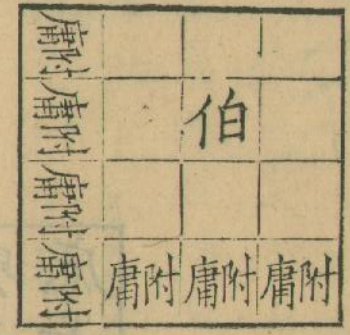 附庸
伯 附庸
附庸
附庸 附庸 附庸 附庸